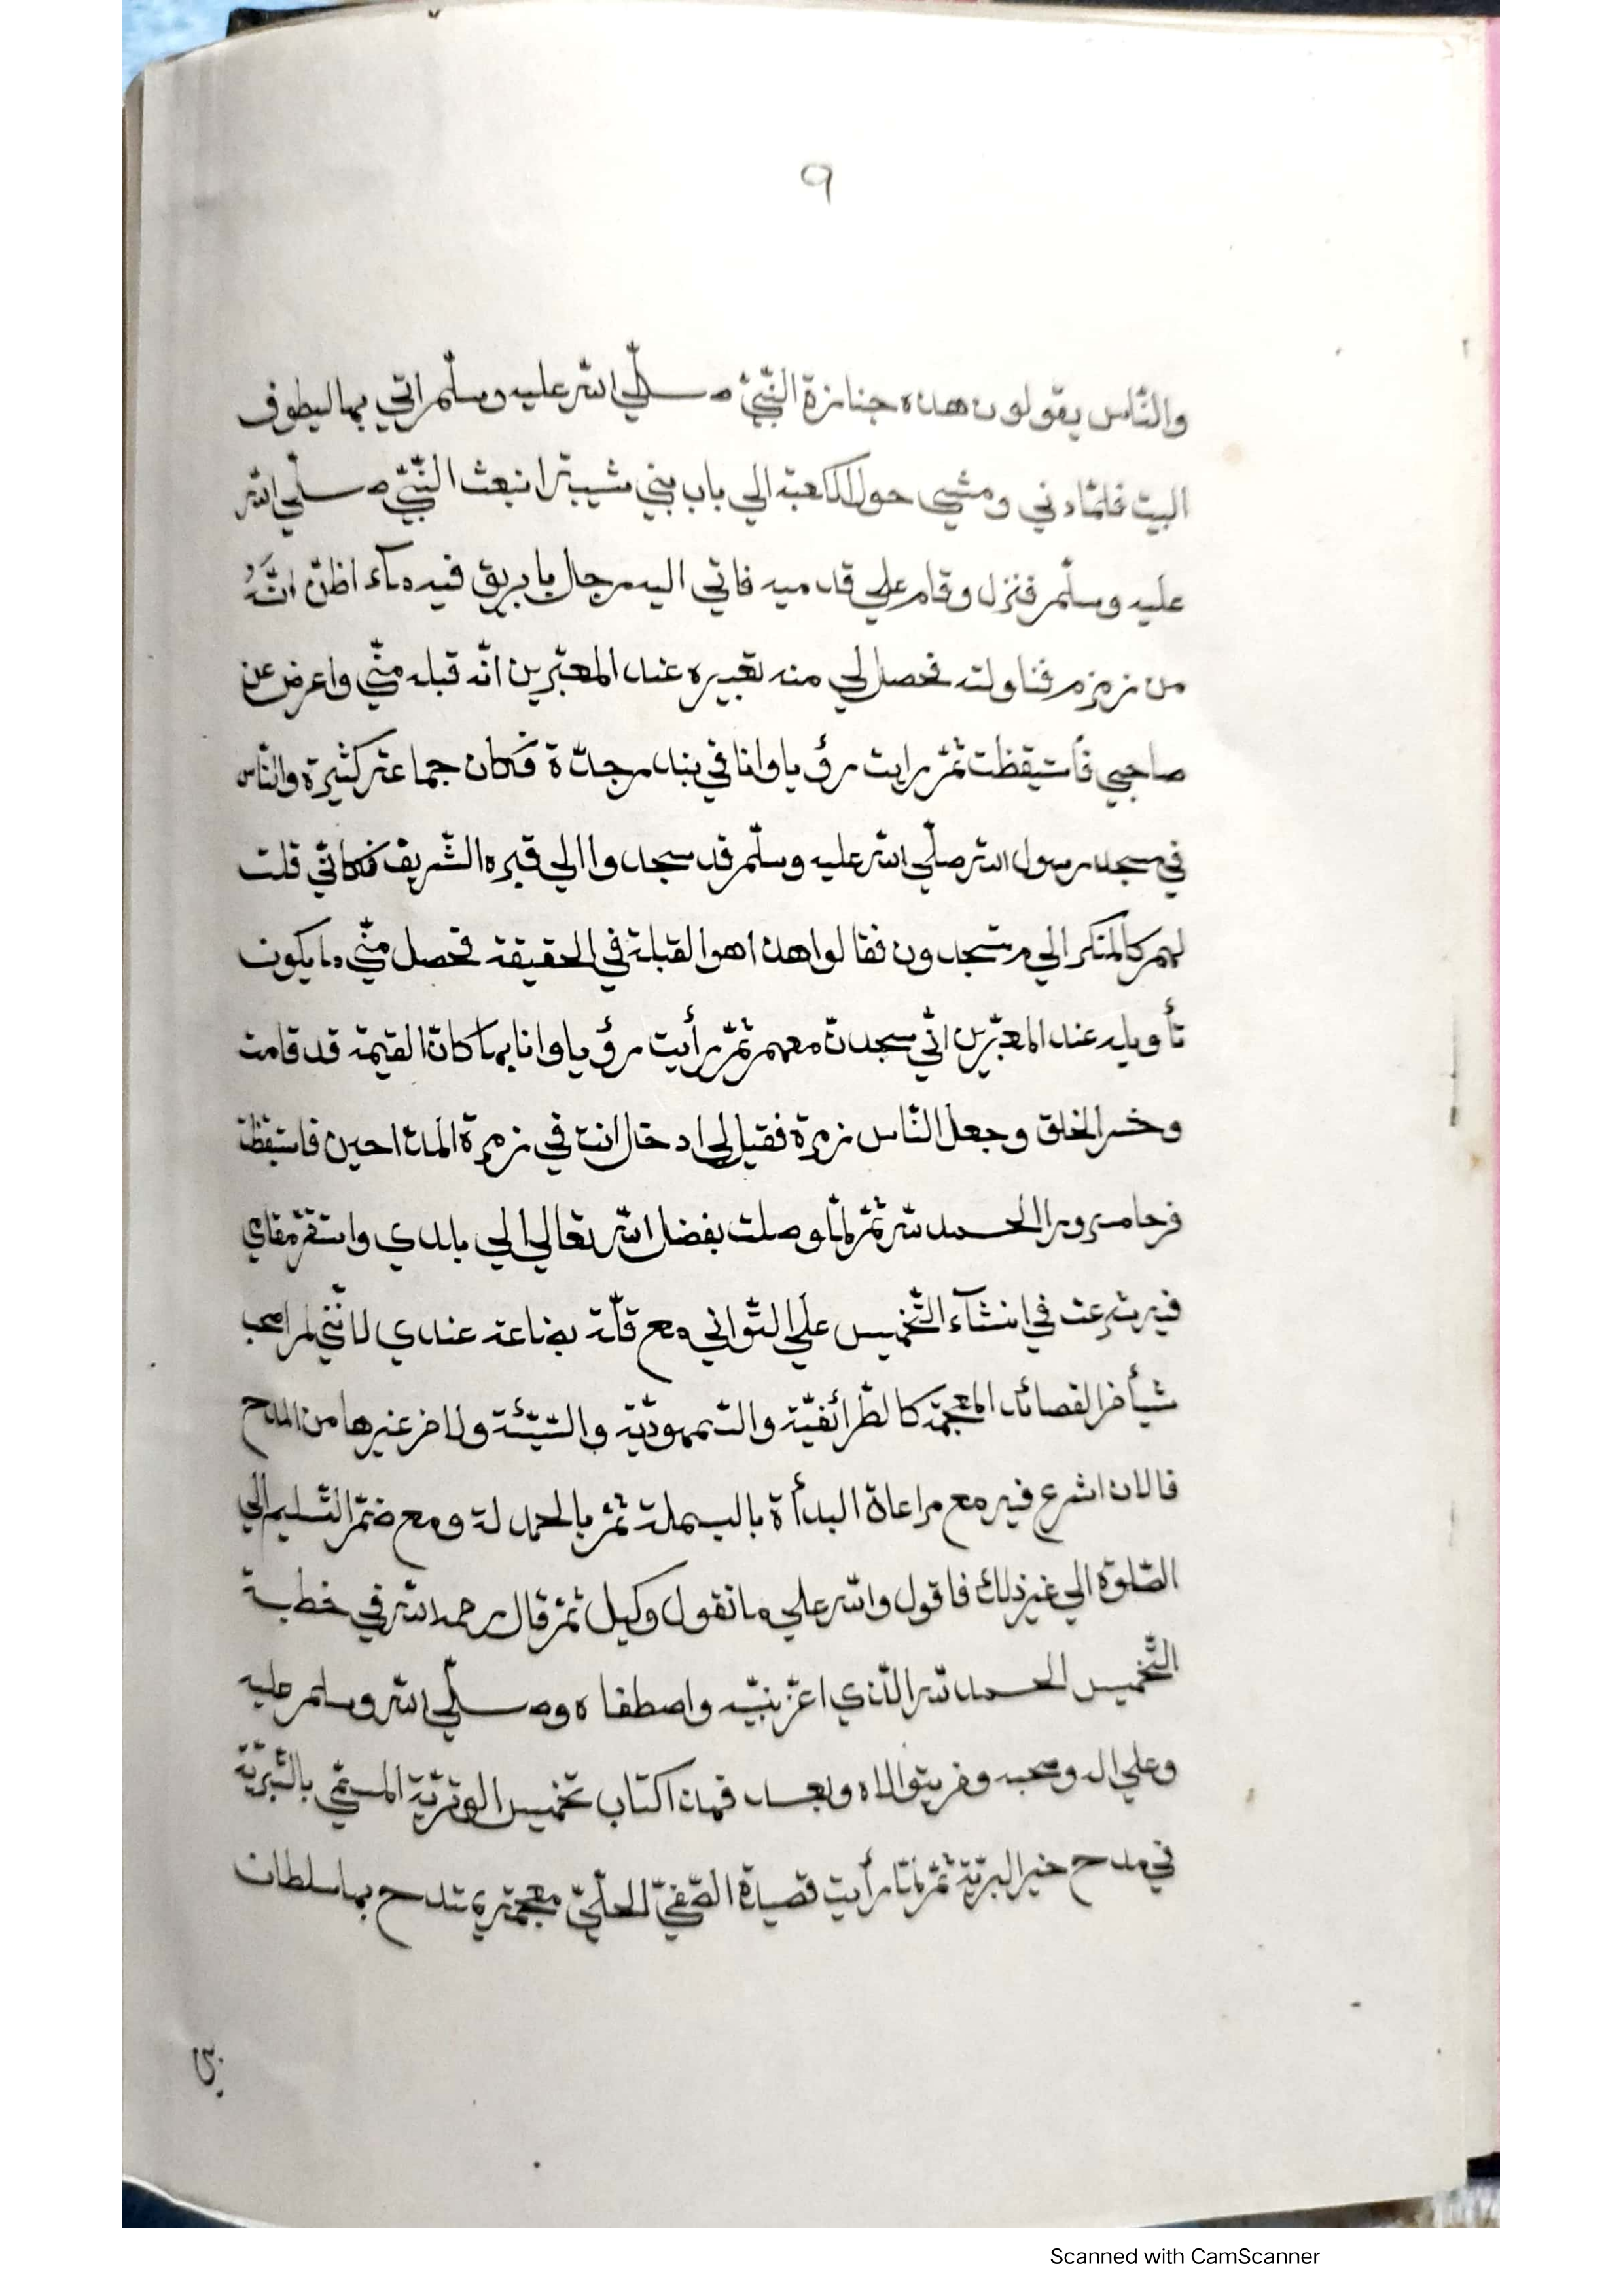 ٩
والنّاس يقولون هذه جنازة النّبيّ صلّي الله عليه وسلّم اتي بها ليطوف
البيت فلمّا دني ومشي حول الكعبة الي باب بني شيبة انبعث النّبيّ صلّي الله
عليه وسلّم فنزل وقام علي قدميه فاتي اليه رجل بابريق فيه ماء اظنّ انّه
من زمزم فناولته فحصل لي منه تعبيره عند المعبّرين انّه قبله منّي واعرض عن
صاحبي فأستيقظت ثمّ رايت رؤيا وانا في بندر جدّة فكان جماعة كثيرة والنّاس
في مسجد رسول الله صلّي الله عليه وسلّم قد سجدوا الي قبره الشّريف فكانّي قلت
لهم كالمنكر الي م تسجدون فقالوا هذا هو القبلة في الحقيقة فحصل منّي ما يكون
تأويله عند المعبّرين انّي سجدت معهم ثمّ رأيت رؤيا وانا بها كان القيمة قد قامت
وحشر الخلق وجعل النّاس زمرة فقيل لي ادخل انت في زمرة المداحين فاستيقظت
فرحا مسرورا الحمد لله ثمّ لمّا وصلت بفضل الله تعالي الي بلدي واستقرّ مقامي
فيه شرعت في انشآء التّخميس علي التّواني مع قلّة بضاعة عندي لانّني لم اصحب
شيأ من القصائد المعجمة كالطّرائفيّة والتّمهوديّة والتّيتئة ولا من غيرها من المدح
فالان اشرع فيه مع مراعاة البدأة بالبسملة ثمّ بالحمدلة ومع ضمّ التّسليم الي
الصّلوة الي غير ذلك فاقول والله علي ما نقول وكيل ثمّ قال رحمه الله في خطبة
التّخميس الحمد لله الّذي اعزّ نبيّه واصطفاه وصلّي الله وسلم عليه
وعلي اله وصحبه ومن والاه وبعد فهذا كتاب تخميس الوتريّة المسمّي بالتّبريّة
في مدح خير البريّة ثمّ لمّا رأيت قصيدة الصّفيّ الحلّيّ معجمة يمتدح بها سلطان